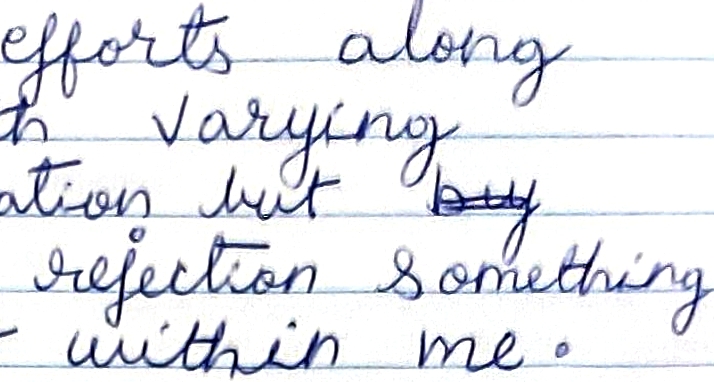 efforts along
th varying
ation but
rejection something
within me.